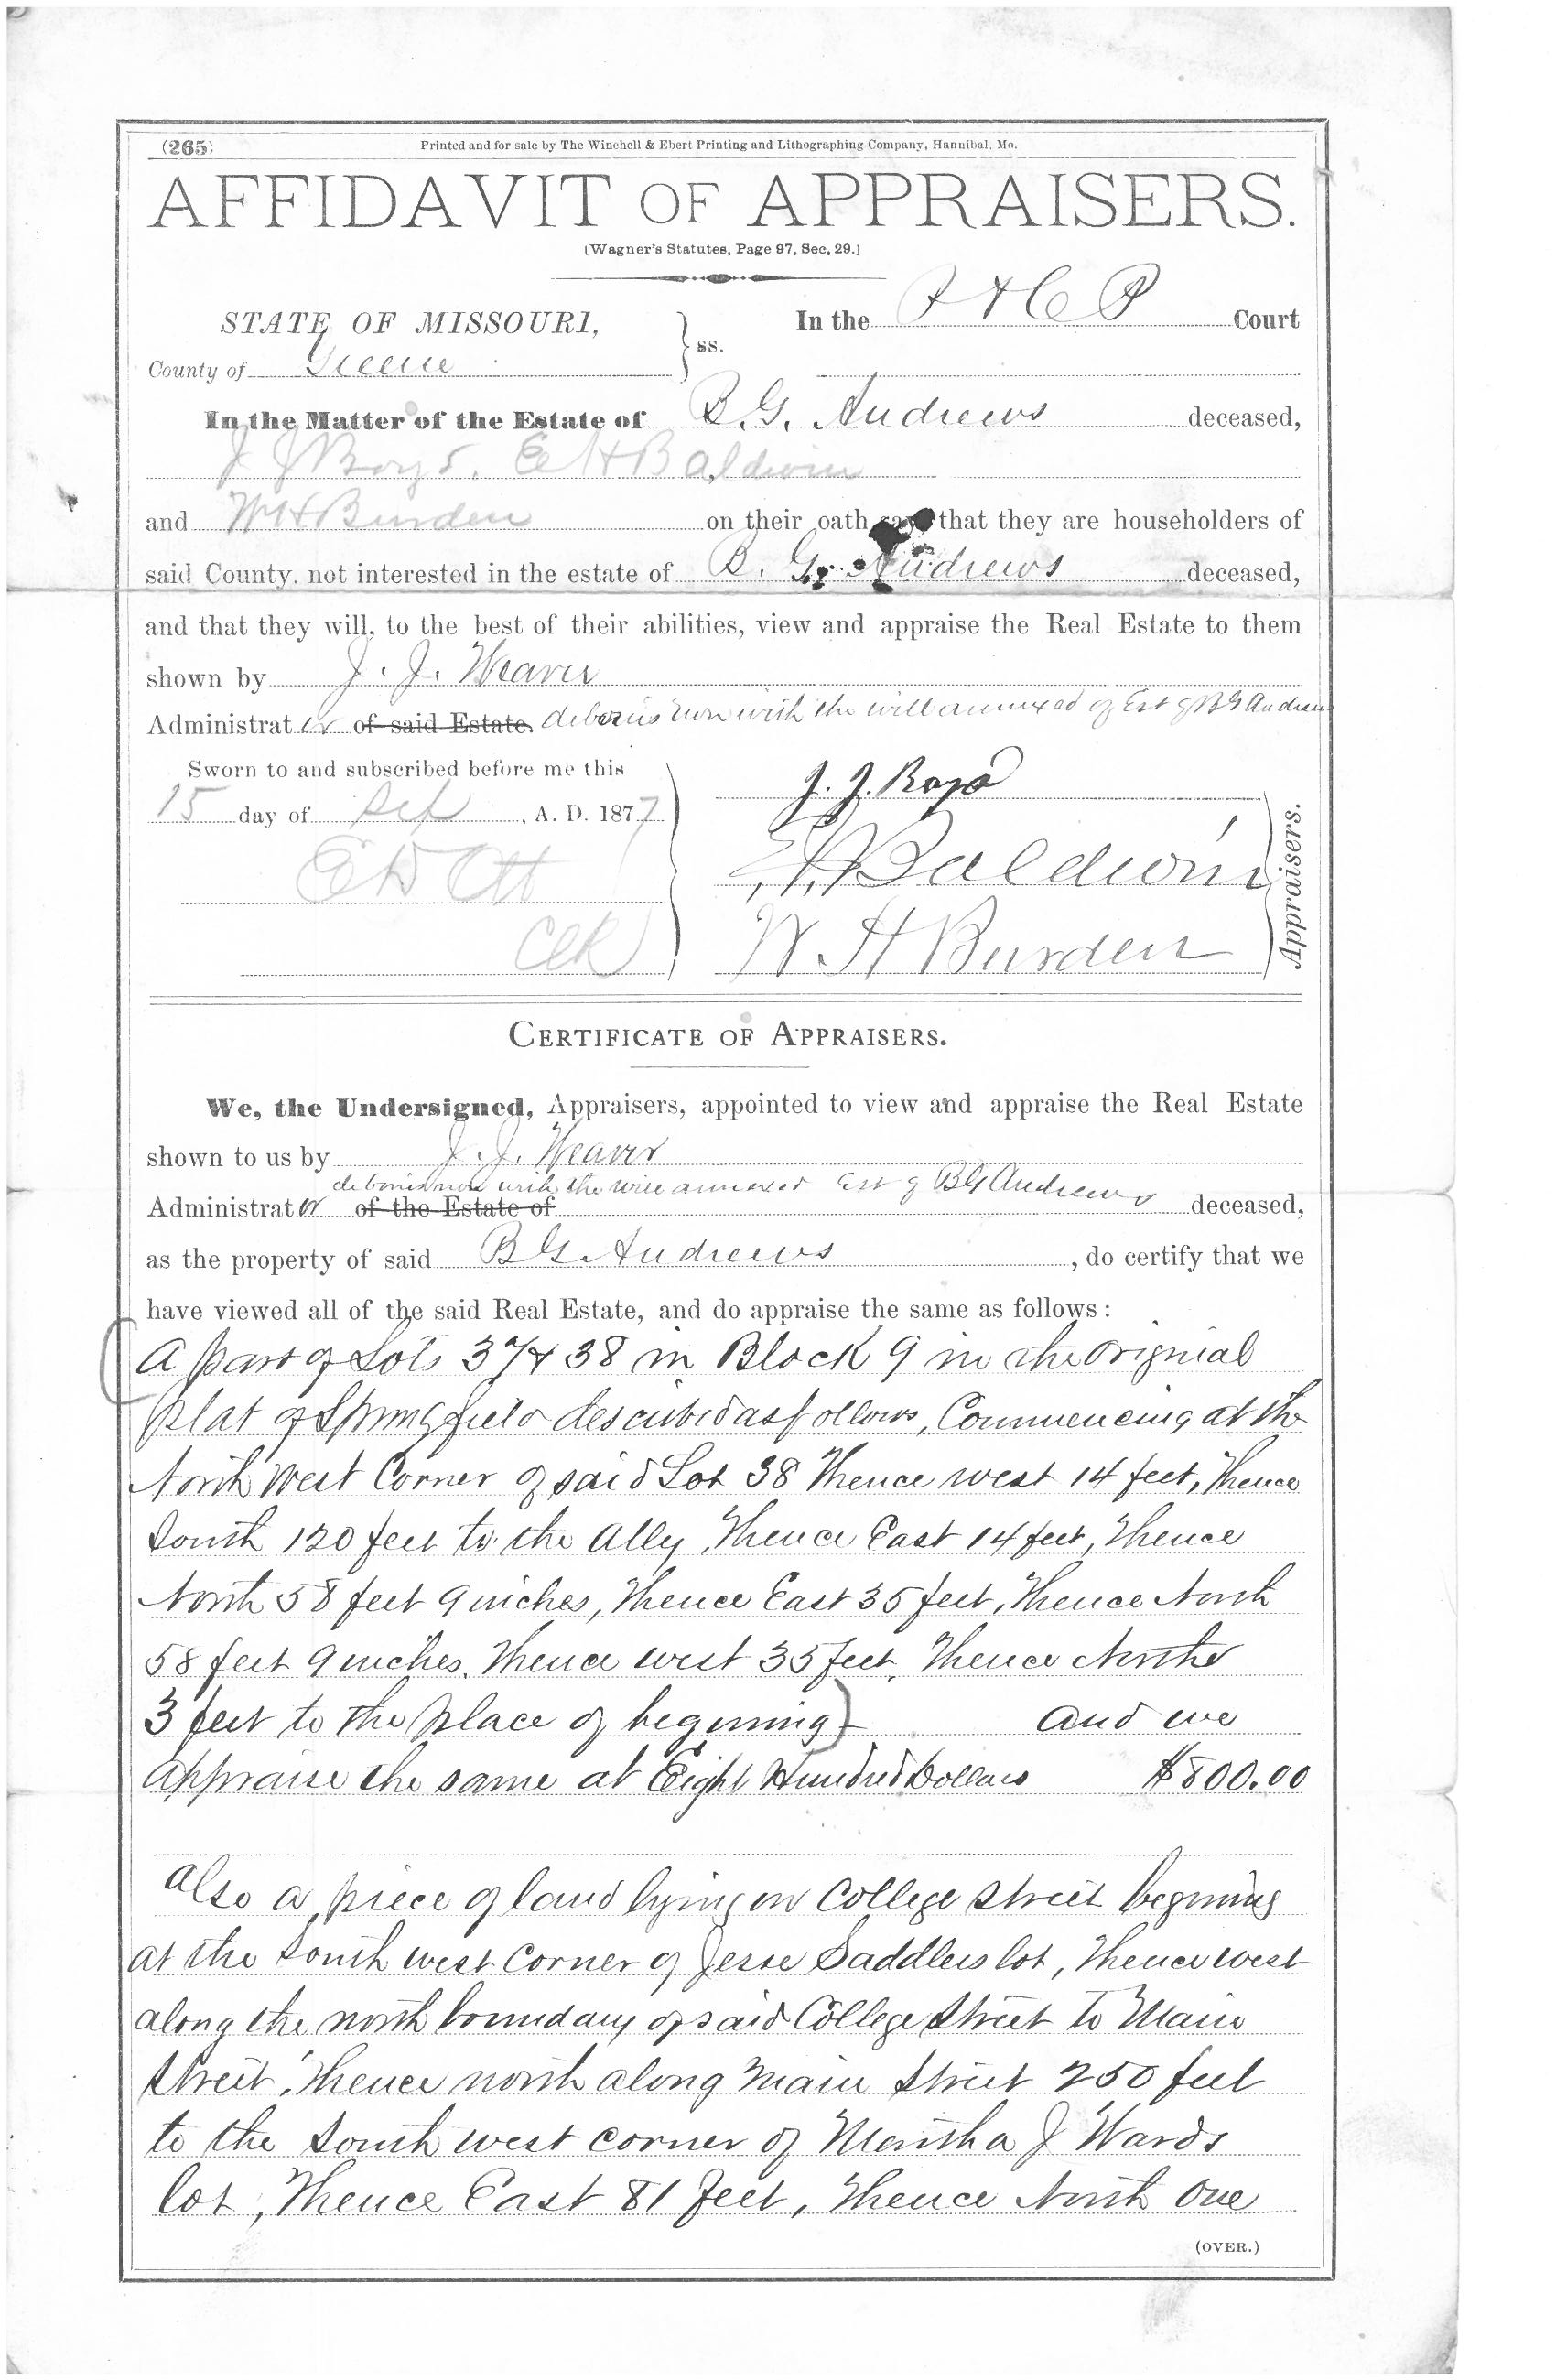 (265)
Printed and for sale by The Winchell & Ebert Printing and Lithographing Company, Hannibal, Mo.
AFFIDAVIT OF APPRAISERS.
(Wagner's Statutes, Page 97, Sec, 29.)
STATE OF MISSOURI, } ss. In the P & C P Court
County of Greene
In the Matter of the Estate of B. G. Andrews deceased,
J J Boyd, E H Baldwin
and W H Burden on their oath say that they are householders of
said County, not interested in the estate of B. G. Andrews deceased,
and that they will, to the best of their abilities, view and appraise the Real Estate to them
shown by J. J. Weaver
Administrator of said Estate. debonis non with the will annexed of Est of B G Andrews
Sworn to and subscribed before me this
15 day of Sep, A. D. 1877
E D Ott
Clk
J. J. Boyd
E H Baldwin
W. H Burden
Appraisers.
CERTIFICATE OF APPRAISERS.
We, the Undersigned, Appraisers, appointed to view and appraise the Real Estate
shown to us by J. J. Weaver
debonis non with the will annexed Est of B G Andrews
Administrator of the Estate of deceased,
as the property of said B G. Andrews, do certify that we
have viewed all of the said Real Estate, and do appraise the same as follows:
(A part of Lots 37 & 38 in Block 9 in the Orignial
plat of Springfield described as follows, Commencing at the
North West Corner of said Lot 38 Thence west 14 feet, Thence
South 120 feet to the Ally, Thence East 14 feet, Thence
North 58 feet 9 inches, Thence East 35 feet, Thence North
58 feet 9 inches. Thence west 35 feet, Thence North
3 feet to the place of begining) And we
Appraise the same at Eight Hundred Dollars $800.00
Also a piece of land lying on College Street begining
at the South west Corner of Jesse Saddlers lot, Thence west
along the north boundary of said College Street to Main
Street, Thence north along Main Street 250 feet
to the South west corner of Martha J Wards
lot, Thence East 81 feet, Thence North One
(OVER.)